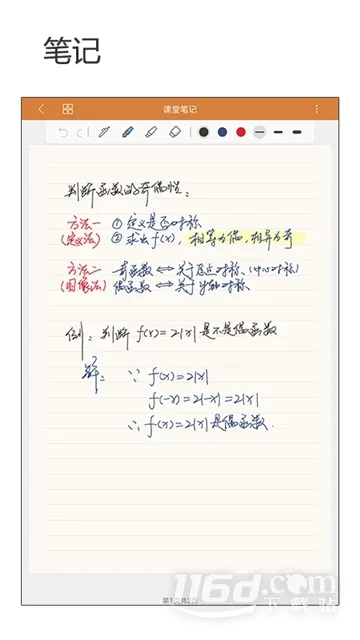 笔记
课堂笔记
判断函数的奇偶性:
方法一 ① 定义是否对称
(定义法) ② 求出f(x), 相等为偶,相异为奇
方法二 奇函数 ⇔ 关于原点对称(中心对称)
(图像法) 偶函数 ⇔ 关于y轴对称
例:判断 f(x)=2|x| 是不是偶函数
解: ∵ f(x)=2|x|
f(-x)=2|-x|=2|x|
∴ f(x)=2|x|是偶函数.
第1页共2页
116d.com
下载站